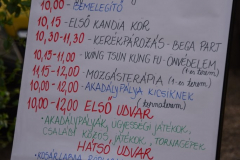 10,00 - BEMELEGÍTŐ
10,15 - ELSŐ KANDIA KÖR
10,30-11,30 - KERÉKPÁROZÁS - BEGA PART
10,00-11,00 - WING TSUN KUNG FU - ÖNVÉDELEM
11,15-12,00 - MOZGÁSTERÁPIA
10,00-11,00 - AKADÁLYPÁLYA KICSIKNEK
10,00-12,00 ELSŐ UDVAR
- AKADÁLYPÁLYÁK, ÜGYESSÉGI JÁTÉKOK,
CSALÁDI KÖZÖS JÁTÉKOK, TORNAGÉPEK
HÁTSÓ UDVAR